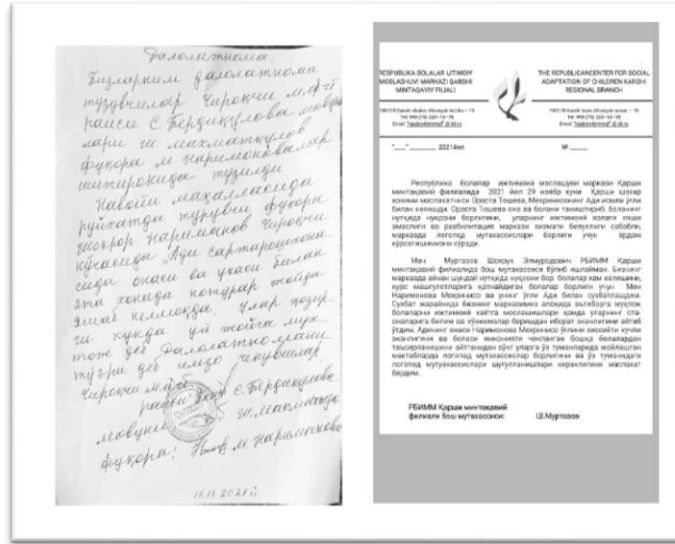 Далолатнома.
Бизларким далолатнома
тузувчилар Чироқчи М.Ф.Й
раиси С. Бердикулова
лари Ш Махматкулов
фуқора М Наримоновалар
иштирокида тузилди
Навоий махалласида
руйхатда турувчи фуқора
Наримонов Чироқчи
кўчасида "Ади сартарошхона
сида онаси ва укаси билан
яшаб келмоқда. Улар
ги кунда уй жойга
тож деб Далолатномани
тўғри деб имзо чекувчилар
Чироқчи
раиси С. Бердикулова
Ш. Махматкулов
Фуқора: М. Наримонова
11.11 2021й
RESPUBLIKA BOLALAR IJTIMOIY
MOSLASHUVI MARKAZI QARSHI
MINTAQAVIY FILIALI
THE REPUBLICANCENTER FOR SOCIAL
ADAPTATION OF CHILDREN KARSHI
REGIONAL BRANCH
"___"________ 2021йил
№ _____
Республика болалар ижтимоий мослашуви маркази Қарши
минтақавий филиалида 2021 йил 29 ноябр куни Қарши шаҳар
хокими маслаҳатчиси Ораста Тошева, Мехринисонинг Ади исмли ўғли
билан келишди. Ораста Тошева она ва болани таништириб, боланинг
нутқида нуқсони борлигини, уларнинг ижтимоий холати яхши
эмаслиги ва реабилитация маркази хизмати бепуллиги сабабли,
марказда логопед мутахассислари борлиги учун ёрдам
кўрсатишимизни сўради.
Мен Муртазов Шохрух Элмуродович РБИММ Қарши
минтақавий филиалида бош мутахассиси бўлиб ишлайман. Бизнинг
марказда айнан шундай нутқида нуқсони бор болалар хам келишини,
курс машғулотларига қатнайдиган болалар борлиги учун Мен
Наримонова Мехринисо ва унинг ўғли Ади билан сухбатлашдим.
Сухбат жараёнида бизнинг марказимиз алоҳида эътиборга муҳтож
болаларни ижтимоий хаётга мослашишлари ҳамда уларнинг ота-
оналарига билим ва кўникмалар беришдан иборат эканлигини айтиб
ўтдим. Адининг онаси Наримонова Мехринисо ўғлини хиссиёти кучли
эканлигини ва боласи имконияти чекланган бошқа болалардан
таъсирланишини айтганидан сўнг уларга ўз туманларида жойлашган
мактабларда логопед мутахассислар борлигини ва ўз туманидаги
логопед мутахассислари шуғулланишлари кераклигини маслаҳат
бердим.
РБИММ Қарши минтақавий
филиали бош мутахассиси: Ш.Муртазов